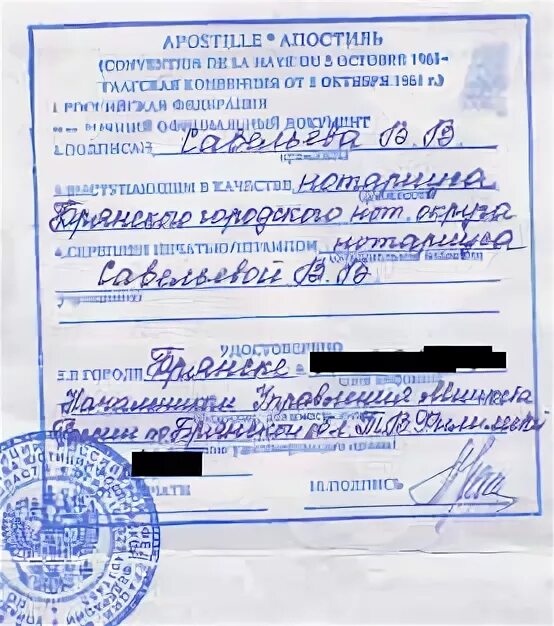 APOSTILLE * АПОСТИЛЬ
(CONVENTION DE LA HAYE DU 5 OCTOBRE 1961-
ГААГСКАЯ КОНВЕНЦИЯ ОТ 5 ОКТЯБРЯ 1961 г.)
1 РОССИЙСКАЯ ФЕДЕРАЦИЯ
ОФИЦИАЛЬНЫЙ ДОКУМЕНТ
2 ПОДПИСАН Савельева В. В
3 ВЫСТУПАЮЩИМ В КАЧЕСТВЕ нотариуса
Брянского городского нот. округа
4 СКРЕПЛЕН ПЕЧАТЬЮ/ШТАМПОМ нотариуса
Савельевой В. В
УДОСТОВЕРЕНО
5. В ГОРОДЕ Брянске
Начальником Управления Минюста
по Брянской обл Т В
10. ПОДПИСЬ